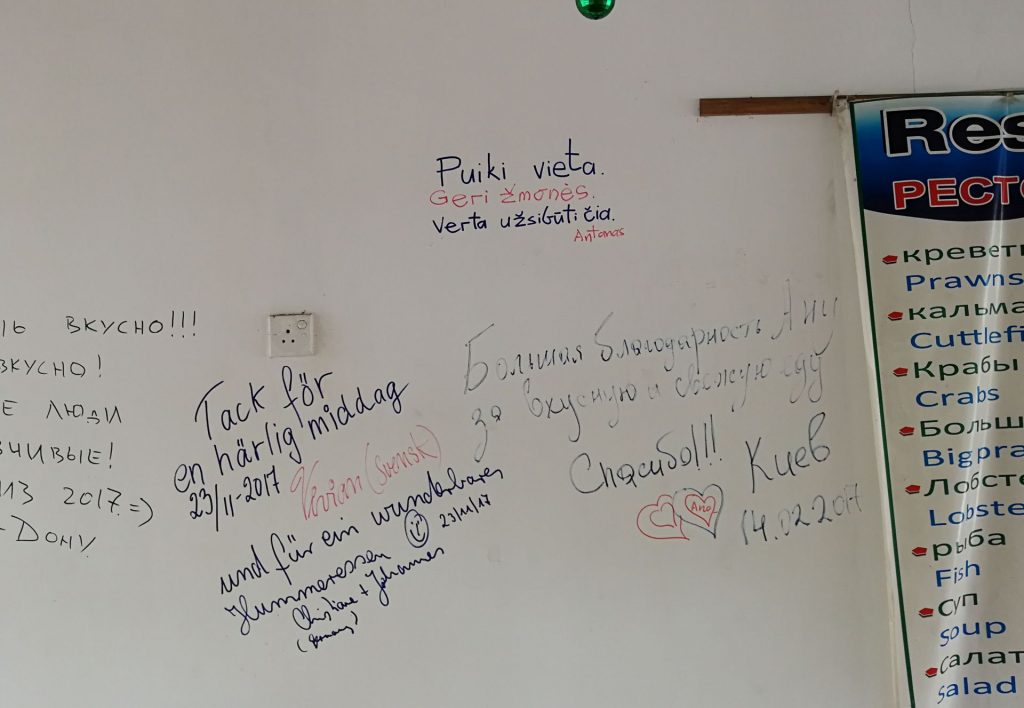 Puiki vieta.
Geri žmonės.
Verta užsibūti čia.
Antanas
ВКУСНО!!!
ВКУСНО!
ЛЮДИ
2017 =)
Дону
Tack för
en härlig middag
23/11-2017
(Svensk)
und für ein wunderbares
Hummeressen
23/11/17
Christiane + Johannes
(Germany)
Большая благодарность Ану
за вкусную и свежую еду
Спасибо!!!
Киев
Ano
14.02.2017
Res
РЕСТО
кревет
Prawns
кальма
Cuttlefi
Крабы
Crabs
Больш
Bigpra
Лобсте
Lobste
рыба
Fish
суп
soup
салат
salad